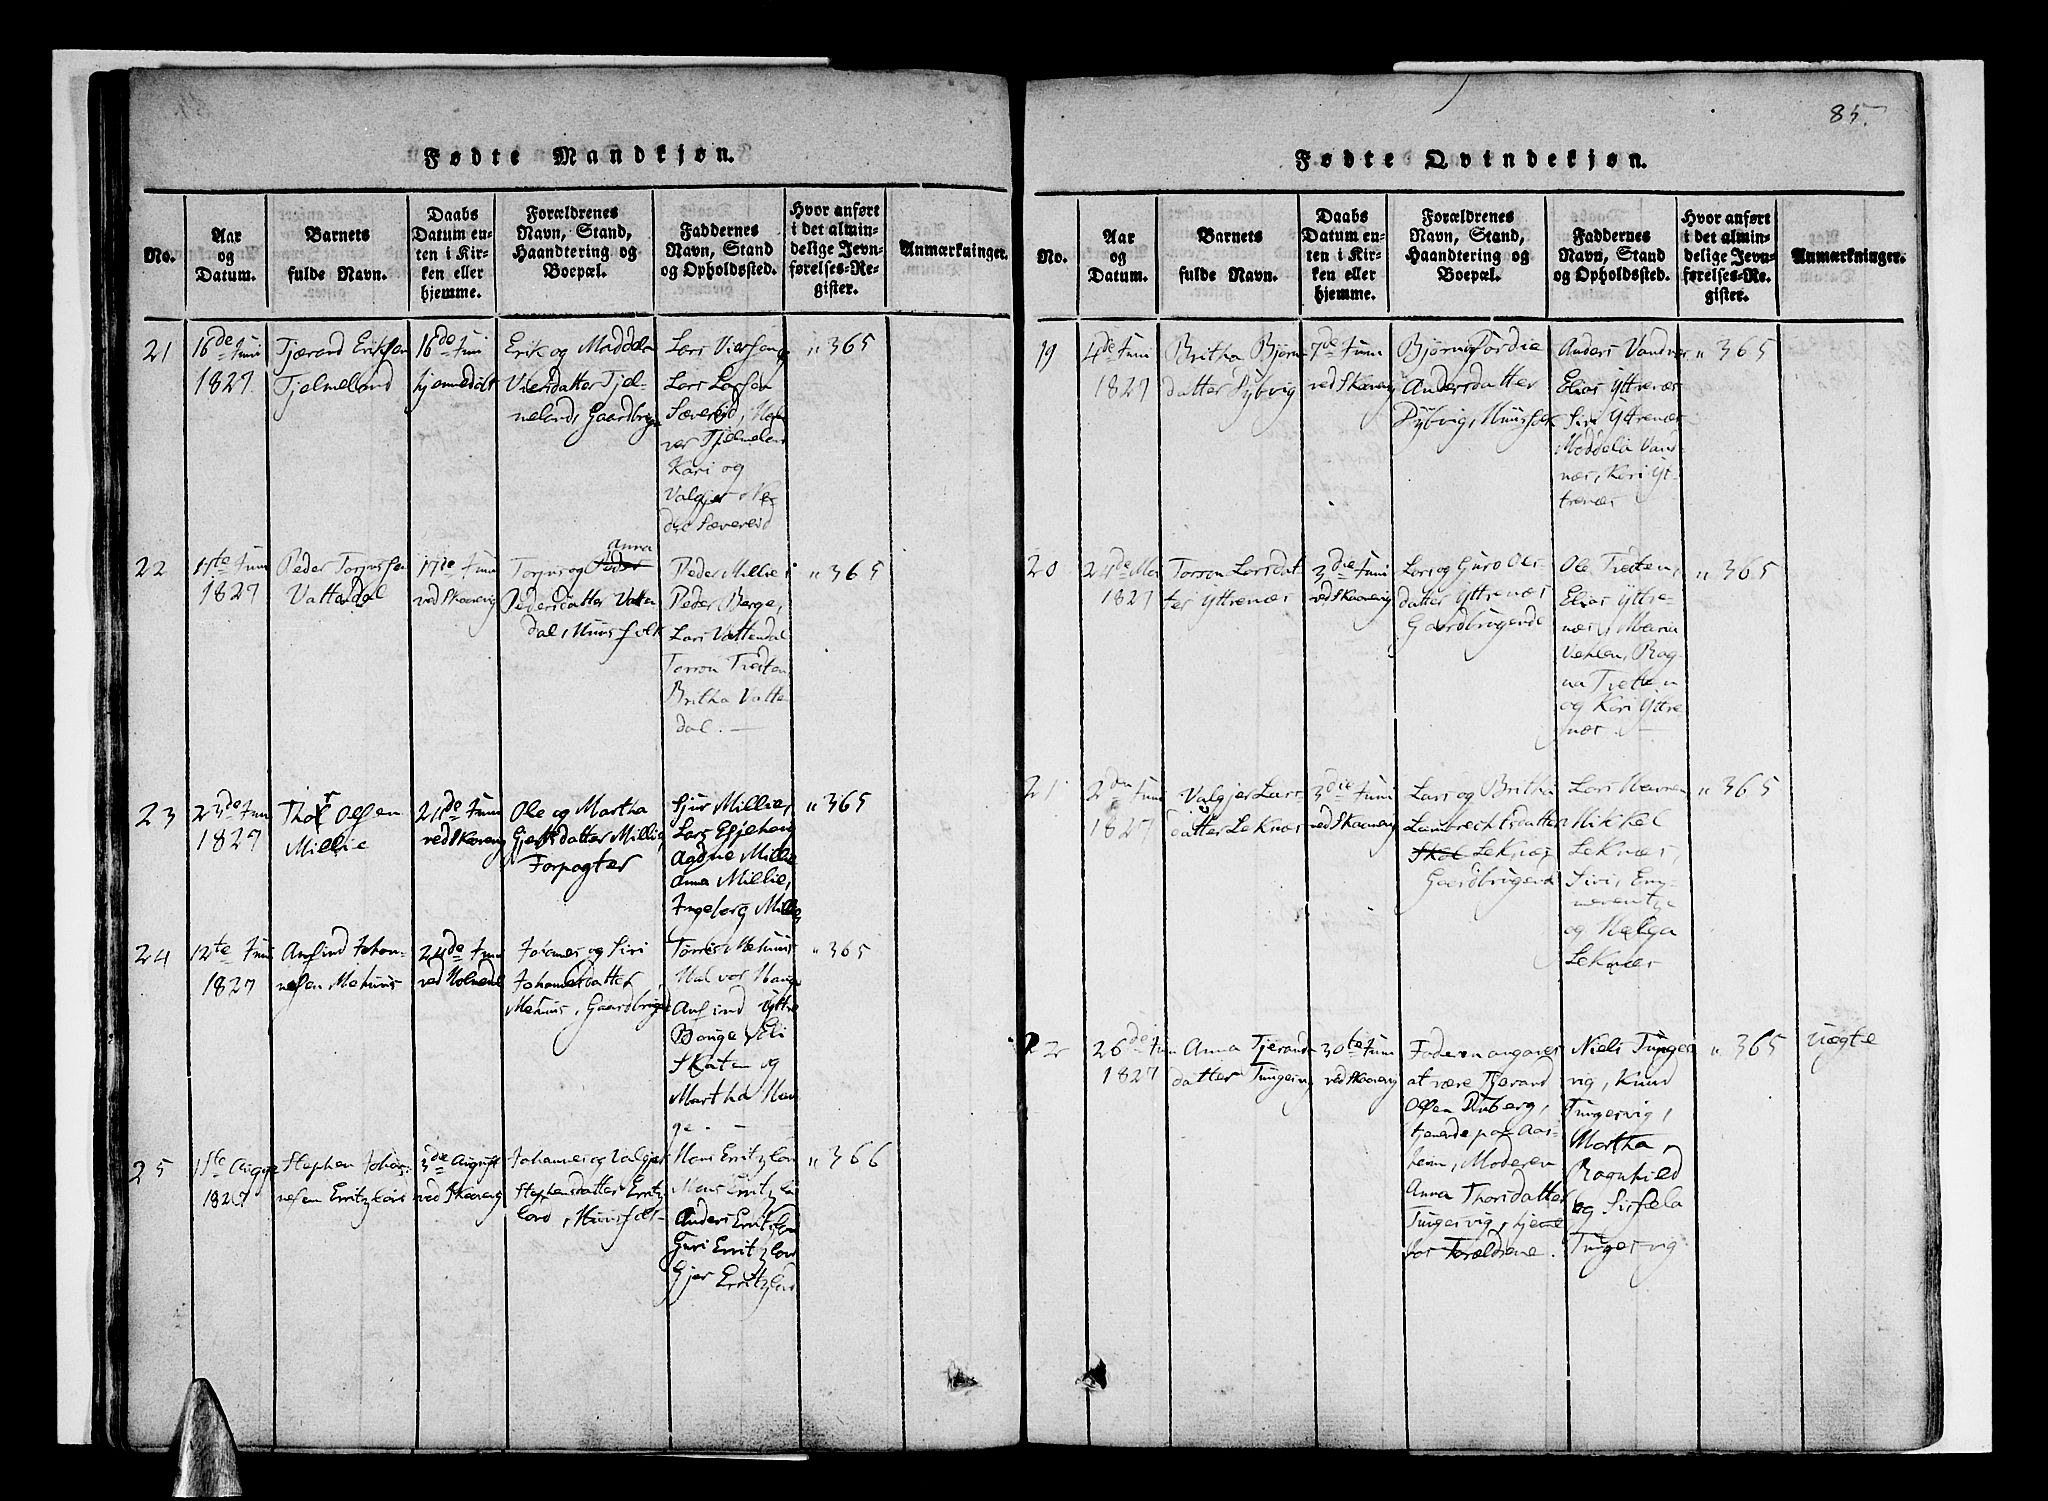 85.
Fødte Mandkjøn.
No.
Aar
og
Datum.
Barnets
fulde Navn.
Daabs
Datum en-
ten i Kir-
ken eller
hjemme.
Forældrenes
Navn, Stand,
Haandtering og
Boepæl.
Faddernes
Navn, Stand
og Opholdssted.
Hvor anført
i det almin-
delige Jevn-
førelses-Re-
gister.
Anmærkninger.
21
16de Juni
1827.
Tjærand Eriksen
Tjelmeland
16de Juni
hjemmedøbt
Erik og Maddela
Viersdatter Tjel-
melands Gaardbrug
Lars Larsen
Sævereid,
Kari og
Valgjer Ne-
dre Sævereid
" 365
22
1827
Peder Torjussen
Vattedal
17de Juni
ved Skaanevig
Anna
Torjus og Peder
Pedersdatter Vatte
dal, Huusfolk
Peder Millie,
Peder Berge,
Lars Vattedal
Torron Treiten
Britha Vatte
dal. —
" 365
23
23de Juni
1827
Thor Olsen
Millie
24de Juni
ved Skaanevig
Ole og Martha
Millie,
Forpagter
Sjur Millie,
Lars
Aadne Millie
Anna Millie,
Ingeborg Millie
" 365
24
12te Juni
1827
Anfind Johan-
nesen Mehuus
24de Juni
ved Holmedal
Johannes og Siri
Johannesdatter
Mehuus, Gaardbruger
Torres Mehuus
Halvor Hauge
Anfind Yttre
Bauge, Eli
Skaten og
Martha Hau
ge. —
" 365
25
1ste August
1827
Stephen Johan-
nesen Erritzland
5die August
ved Skaanevig
Johannes og Valgjer
Stephensdatter Erritz
land, Huusfolk
Hans Erritzland
Mons Erritzland
Anders Erritzland
Guri Erritzland
Gjer Erritzland
" 366
Fødte Qvindekjøn.
No.
Aar
og
Datum.
Barnets
fulde Navn.
Daabs
Datum en-
ten i Kir-
ken eller
hjemme.
Forældrenes
Navn, Stand,
Haandtering og
Boepæl.
Faddernes
Navn, Stand
og Opholdssted.
Hvor anført
i det almin-
delige Jevn-
førelses-Re-
gister.
Anmærkninger.
19
4de Juni
1827
Britha Bjørns
datter Dybvig
7de Juni
ved Skaanevig
Andersdatter
Dybvig, Huusfolk
Anders Vandnæs
Elias Yttrenæs
Siri Yttrenæs
Maddela Vand
næs, Kari Yt-
trenæs
" 365
20
24de Mai
1827
Torron Larsdat
ter Yttrenæs
3die Juni
ved Skaanevig
Lars og Guro Ols
datter Yttrenæs
Gaardbrugende
Ole Treiten,
Elias Yttre-
næs,
Rag-
na Treiten
og Kari Yttre
næs. —
" 365
21
2den Juni
1827
Valgjer Lars
datter Leknæs
3die Juni
ved Skaanevig
Lars og Britha
Lambrechtsdatter
Leknæs
Gaardbrugende
Lars
Mikkel
Leknæs,
Siri, Em-
merentze
og Helga
Leknæs
" 365
22
26de Juni
1827
Anna Tjerands
datter Tungesvig
30te Juni
ved Skaanevig
Faderen angaves
at være Tjerand
Olsen
tjenende paa Aas-
heim, Moderen
Anna Thorsdatter
Tungesvig, hjemme
hos Forældrene.
Niels Tunges
vig, Knud
Tungesvig,
Martha,
Ragnhild
og Sirsæla
Tungesvig.
" 365
Uægte